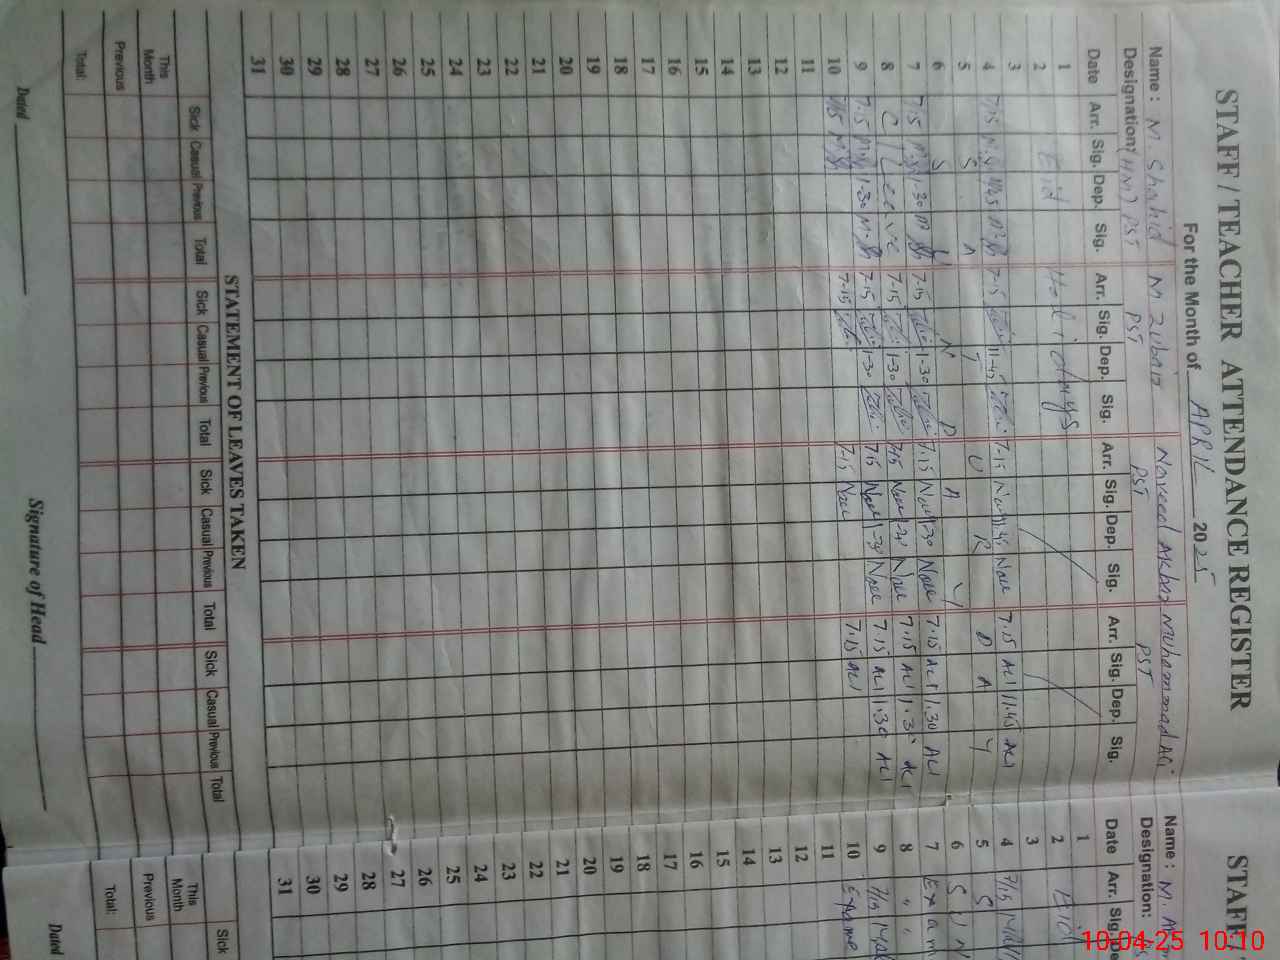 STAFF / TEACHER ATTENDANCE REGISTER
For the Month of APRIL 2025
Name : M. Shahid M Zubair Naveed Akbar Muhammad Ali
Designation: (HM) PST PST PST PST
Date Arr. Sig. Dep. Sig. Arr. Sig. Dep. Sig. Arr. Sig. Dep. Sig. Arr. Sig. Dep. Sig.
1 Eid Holidays
2
3
4 7:15 7-15 11-45 7-15 7.15 ALI 11.45 ALI
5 S A T U R D A Y
6 S U N D A Y
7 7:15 1-30 7-15 1-30 7.15 1-30 7.15 ALI 1.30 ALI
8 C/Leeve 7-15 1-30 7.15 7.15 ALI 1.30 ALI
9 7:15 1-30 7-15 1-30 7.15 7.15 ALI 1.30 ALI
10 7:15 7-15 7.15 7.15 ALI
11
12
13
14
15
16
17
18
19
20
21
22
23
24
25
26
27
28
29
30
31
STATEMENT OF LEAVES TAKEN
Sick Casual Previous Total Sick Casual Previous Total Sick Casual Previous Total Sick Casual Previous Total
This Month
Previous
Total:
Dated Signature of Head
STAFF/
Name : M.
Designation:
Date Arr. Sig. De
1 Eid
2
3
4 7/15
5 S
6 S U N
7 Exam
8 " "
9 7/15
10
11
12
13
14
15
16
17
18
19
20
21
22
23
24
25
26
27
28
29
30
31
Sick
This Month
Previous
Total:
Dated
10-04-25 10:10